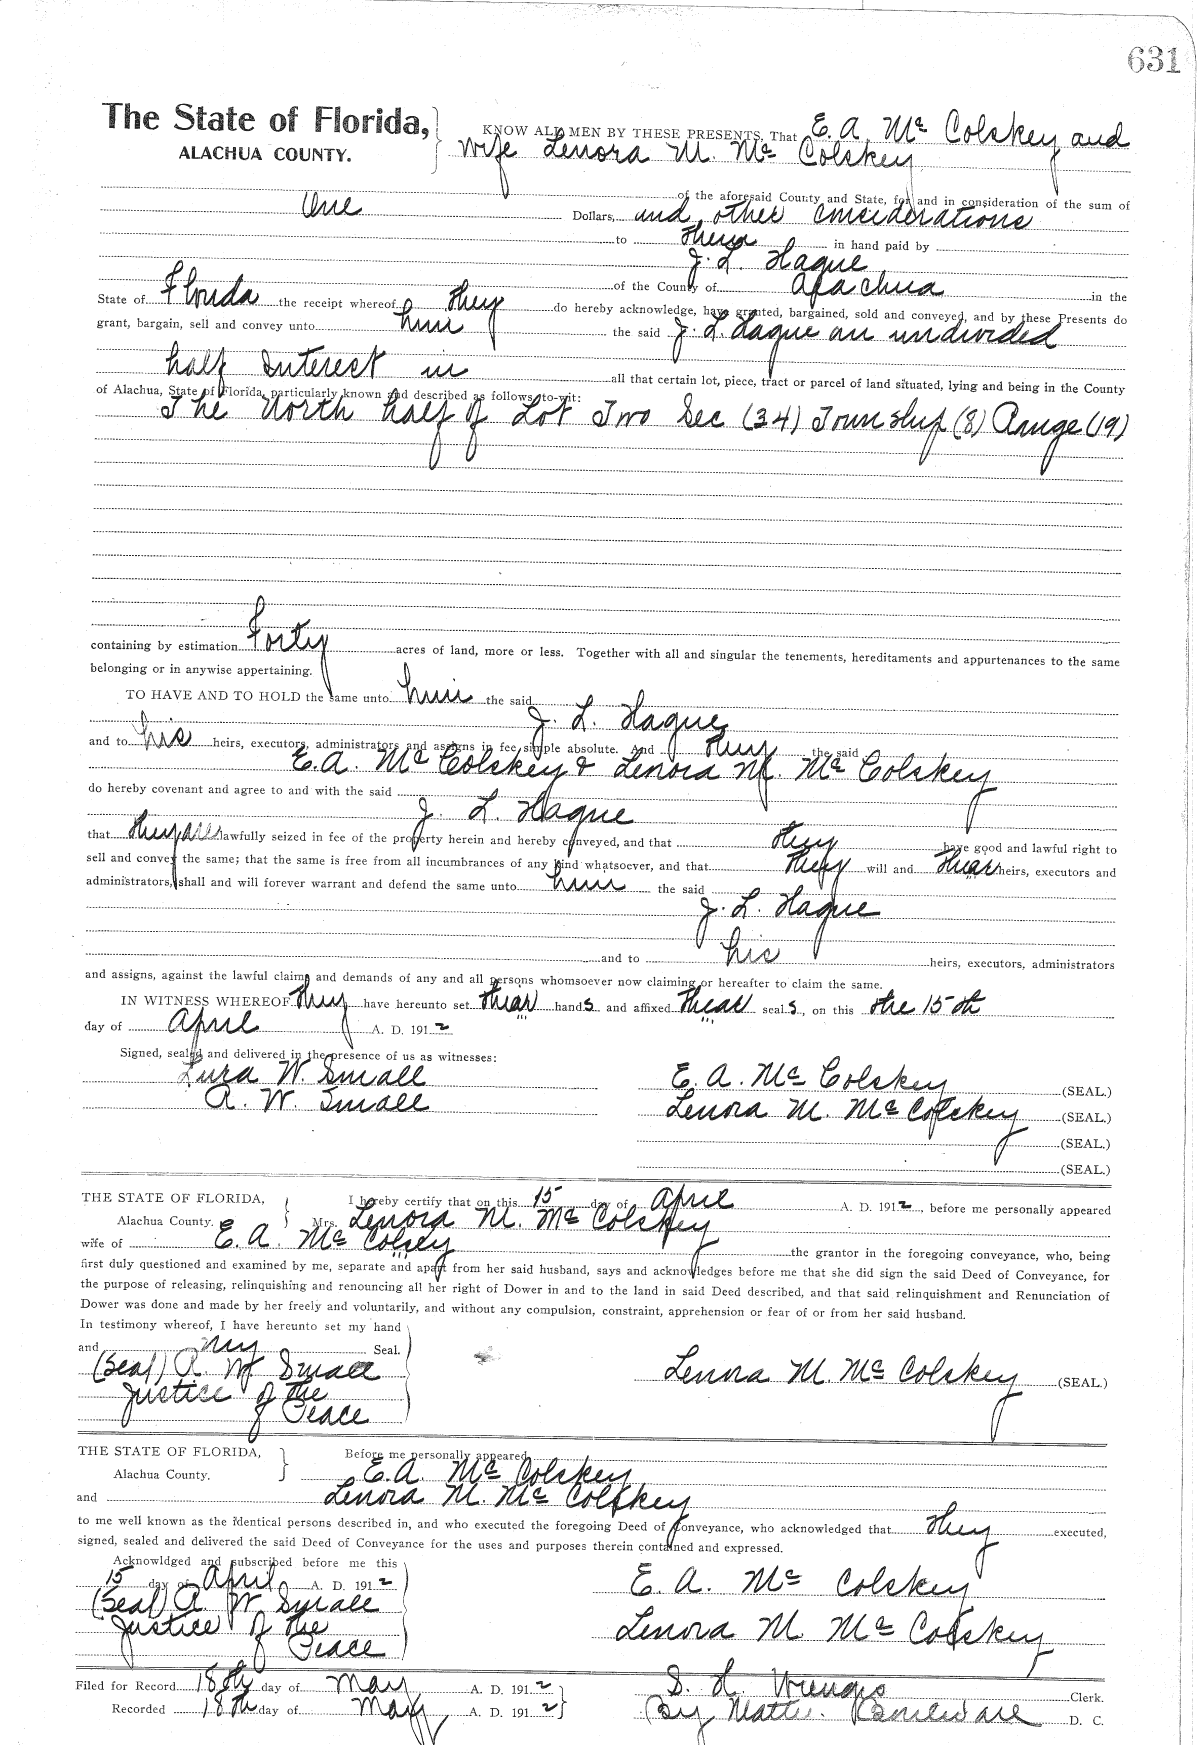 631
The State of Florida, KNOW ALL MEN BY THESE PRESENTS, That E. A. Mc Colskey and
ALACHUA COUNTY. wife Lenora M. Mc Colskey
of the aforesaid County and State, for and in consideration of the sum of
One Dollars, and other considerations
to them in hand paid by
J. L. Hague
of the County of Alachua in the
State of Florida the receipt whereof they do hereby acknowledge, have granted, bargained, sold and conveyed, and by these Presents do
grant, bargain, sell and convey unto him the said J. L. Hague an undivided
half Interest in all that certain lot, piece, tract or parcel of land situated, lying and being in the County
of Alachua, State of Florida, particularly known and described as follows, to-wit:
The North half of Lot Two Sec (34) Township (8) Range (19)
containing by estimation Forty acres of land, more or less. Together with all and singular the tenements, hereditaments and appurtenances to the same
belonging or in anywise appertaining.
TO HAVE AND TO HOLD the same unto him the said
J. L. Hague
and to his heirs, executors, administrators and assigns in fee simple absolute. And they the said
E. A. Mc Colskey & Lenora M. Mc Colskey
do hereby covenant and agree to and with the said
J. L. Hague
that they are lawfully seized in fee of the property herein and hereby conveyed, and that they have good and lawful right to
sell and convey the same; that the same is free from all incumbrances of any kind whatsoever, and that they will and thear heirs, executors and
administrators, shall and will forever warrant and defend the same unto him the said
J. L. Hague
and to his heirs, executors, administrators
and assigns, against the lawful claims and demands of any and all persons whomsoever now claiming or hereafter to claim the same.
IN WITNESS WHEREOF they have hereunto set thear hands and affixed thear seals, on this the 15th
day of April A. D. 1912
Signed, sealed and delivered in the presence of us as witnesses:
Lura W. Small E. A. Mc Colskey (SEAL.)
A. W. Small Lenora M. Mc Colskey (SEAL.)
(SEAL.)
(SEAL.)
THE STATE OF FLORIDA, I hereby certify that on this 15 day of April A. D. 1912, before me personally appeared
Alachua County. Mrs. Lenora M. Mc Colskey
wife of E. A. Mc Colsey the grantor in the foregoing conveyance, who, being
first duly questioned and examined by me, separate and apart from her said husband, says and acknowledges before me that she did sign the said Deed of Conveyance, for
the purpose of releasing, relinquishing and renouncing all her right of Dower in and to the land in said Deed described, and that said relinquishment and Renunciation of
Dower was done and made by her freely and voluntarily, and without any compulsion, constraint, apprehension or fear of or from her said husband.
In testimony whereof, I have hereunto set my hand
and my Seal.
(Seal) A. W. Small Lenora M. Mc Colskey (SEAL.)
Justice of the
Peace
THE STATE OF FLORIDA, Before me personally appeared
Alachua County. E. A. Mc Colskey
and Lenora M. Mc Colskey
to me well known as the identical persons described in, and who executed the foregoing Deed of Conveyance, who acknowledged that they executed,
signed, sealed and delivered the said Deed of Conveyance for the uses and purposes therein contained and expressed.
Acknowldged and subscribed before me this
15 day of April A. D. 1912 E. A. Mc Colskey
(Seal) A W Small
Justice of the Lenora M Mc Colskey
Peace
Filed for Record 18th day of May A. D. 1912 S. H. Clerk.
Recorded 18th day of May A. D. 1912 By D. C.